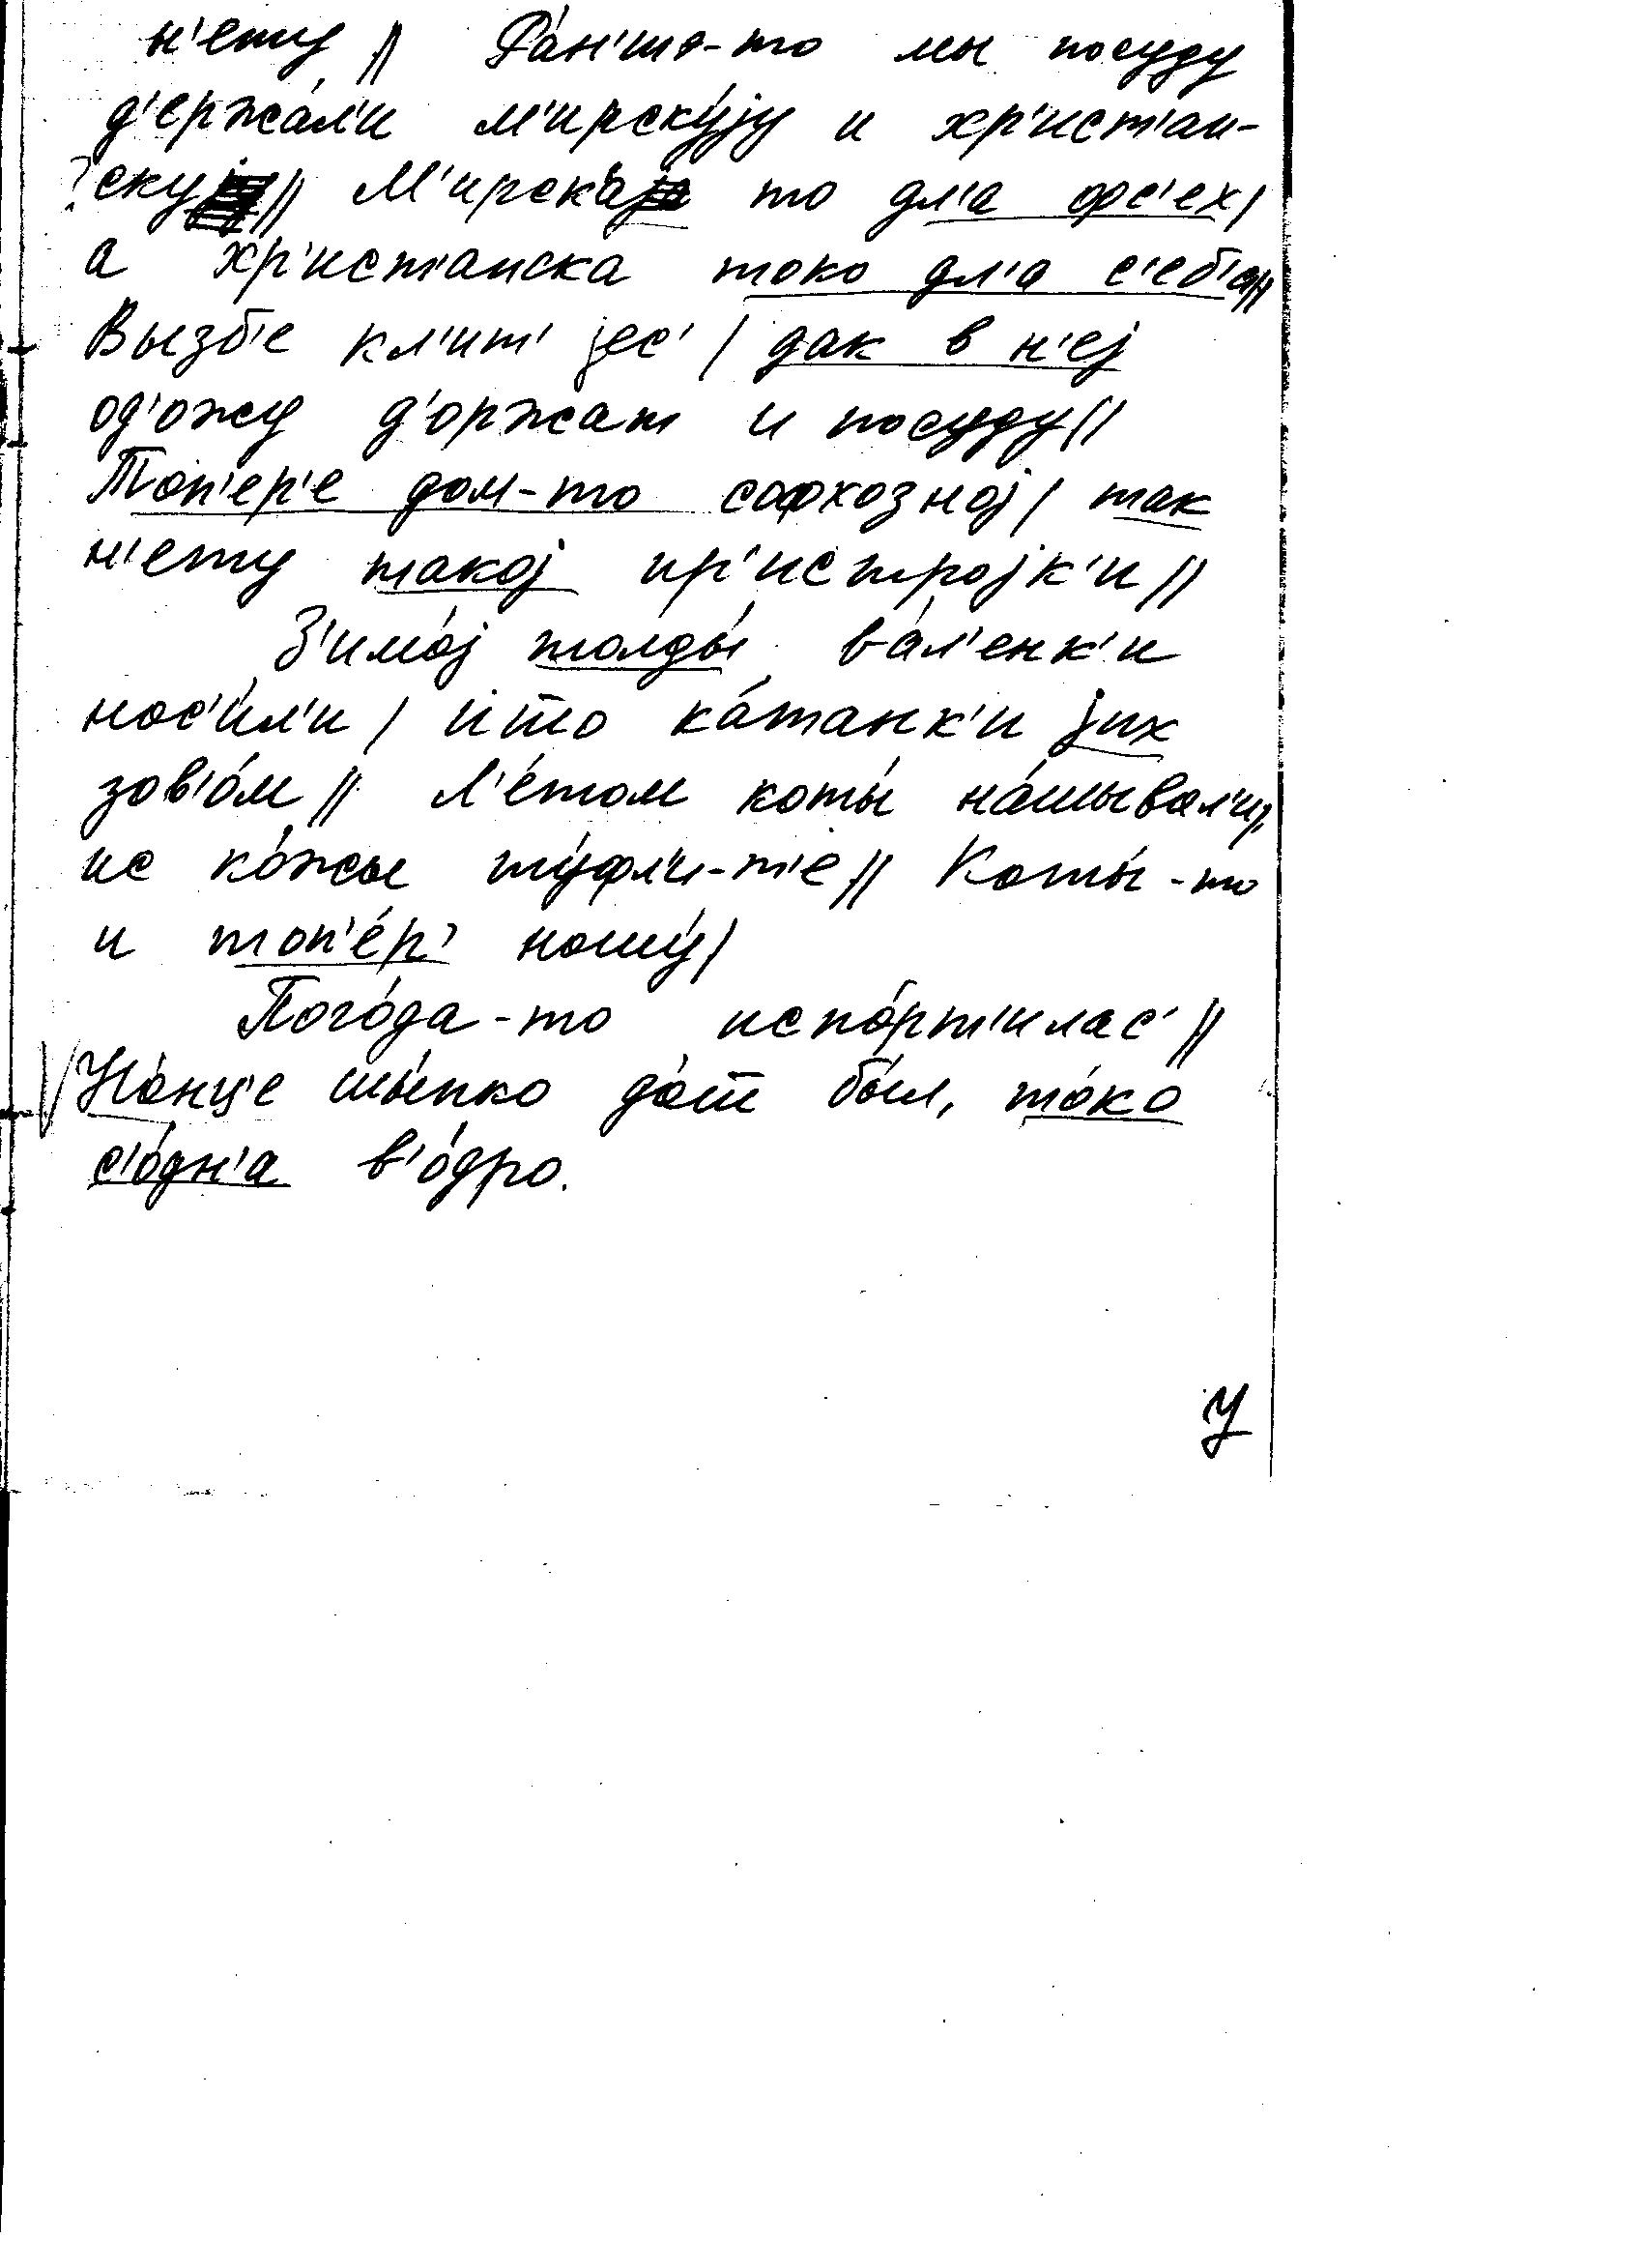 н'ету // Ра́н'ше-то мы посуду
д'ержа́л'и м'ирску́jу и хр'ист'ан-
ску // М'ирска́jа то дл'а фс'ех /
а хр'ист'анска токо дл'а с'еб'а //
Вызб'е кл'ит' jес' / дак в н'еj
од'ожу д'оржат и посуду //
Топ'ер'е дом-то софхозноj / так
н'ету такоj пр'истроjк'и //
З'имо́j толды́ ва́л'енк'и
нос'и́л'и / што ка́танк'и jих
зов'о́м // Л'е́том коты́ на́шывал'и /
ис ко́жы ту́фл'и-т'е // Коты́-то
и топ'е́р' ношу́ /
Пого́да-то испо́рт'илас' //
шы́пко до́ш был, то́ко
с'о́дн'а в'о́дро.
У